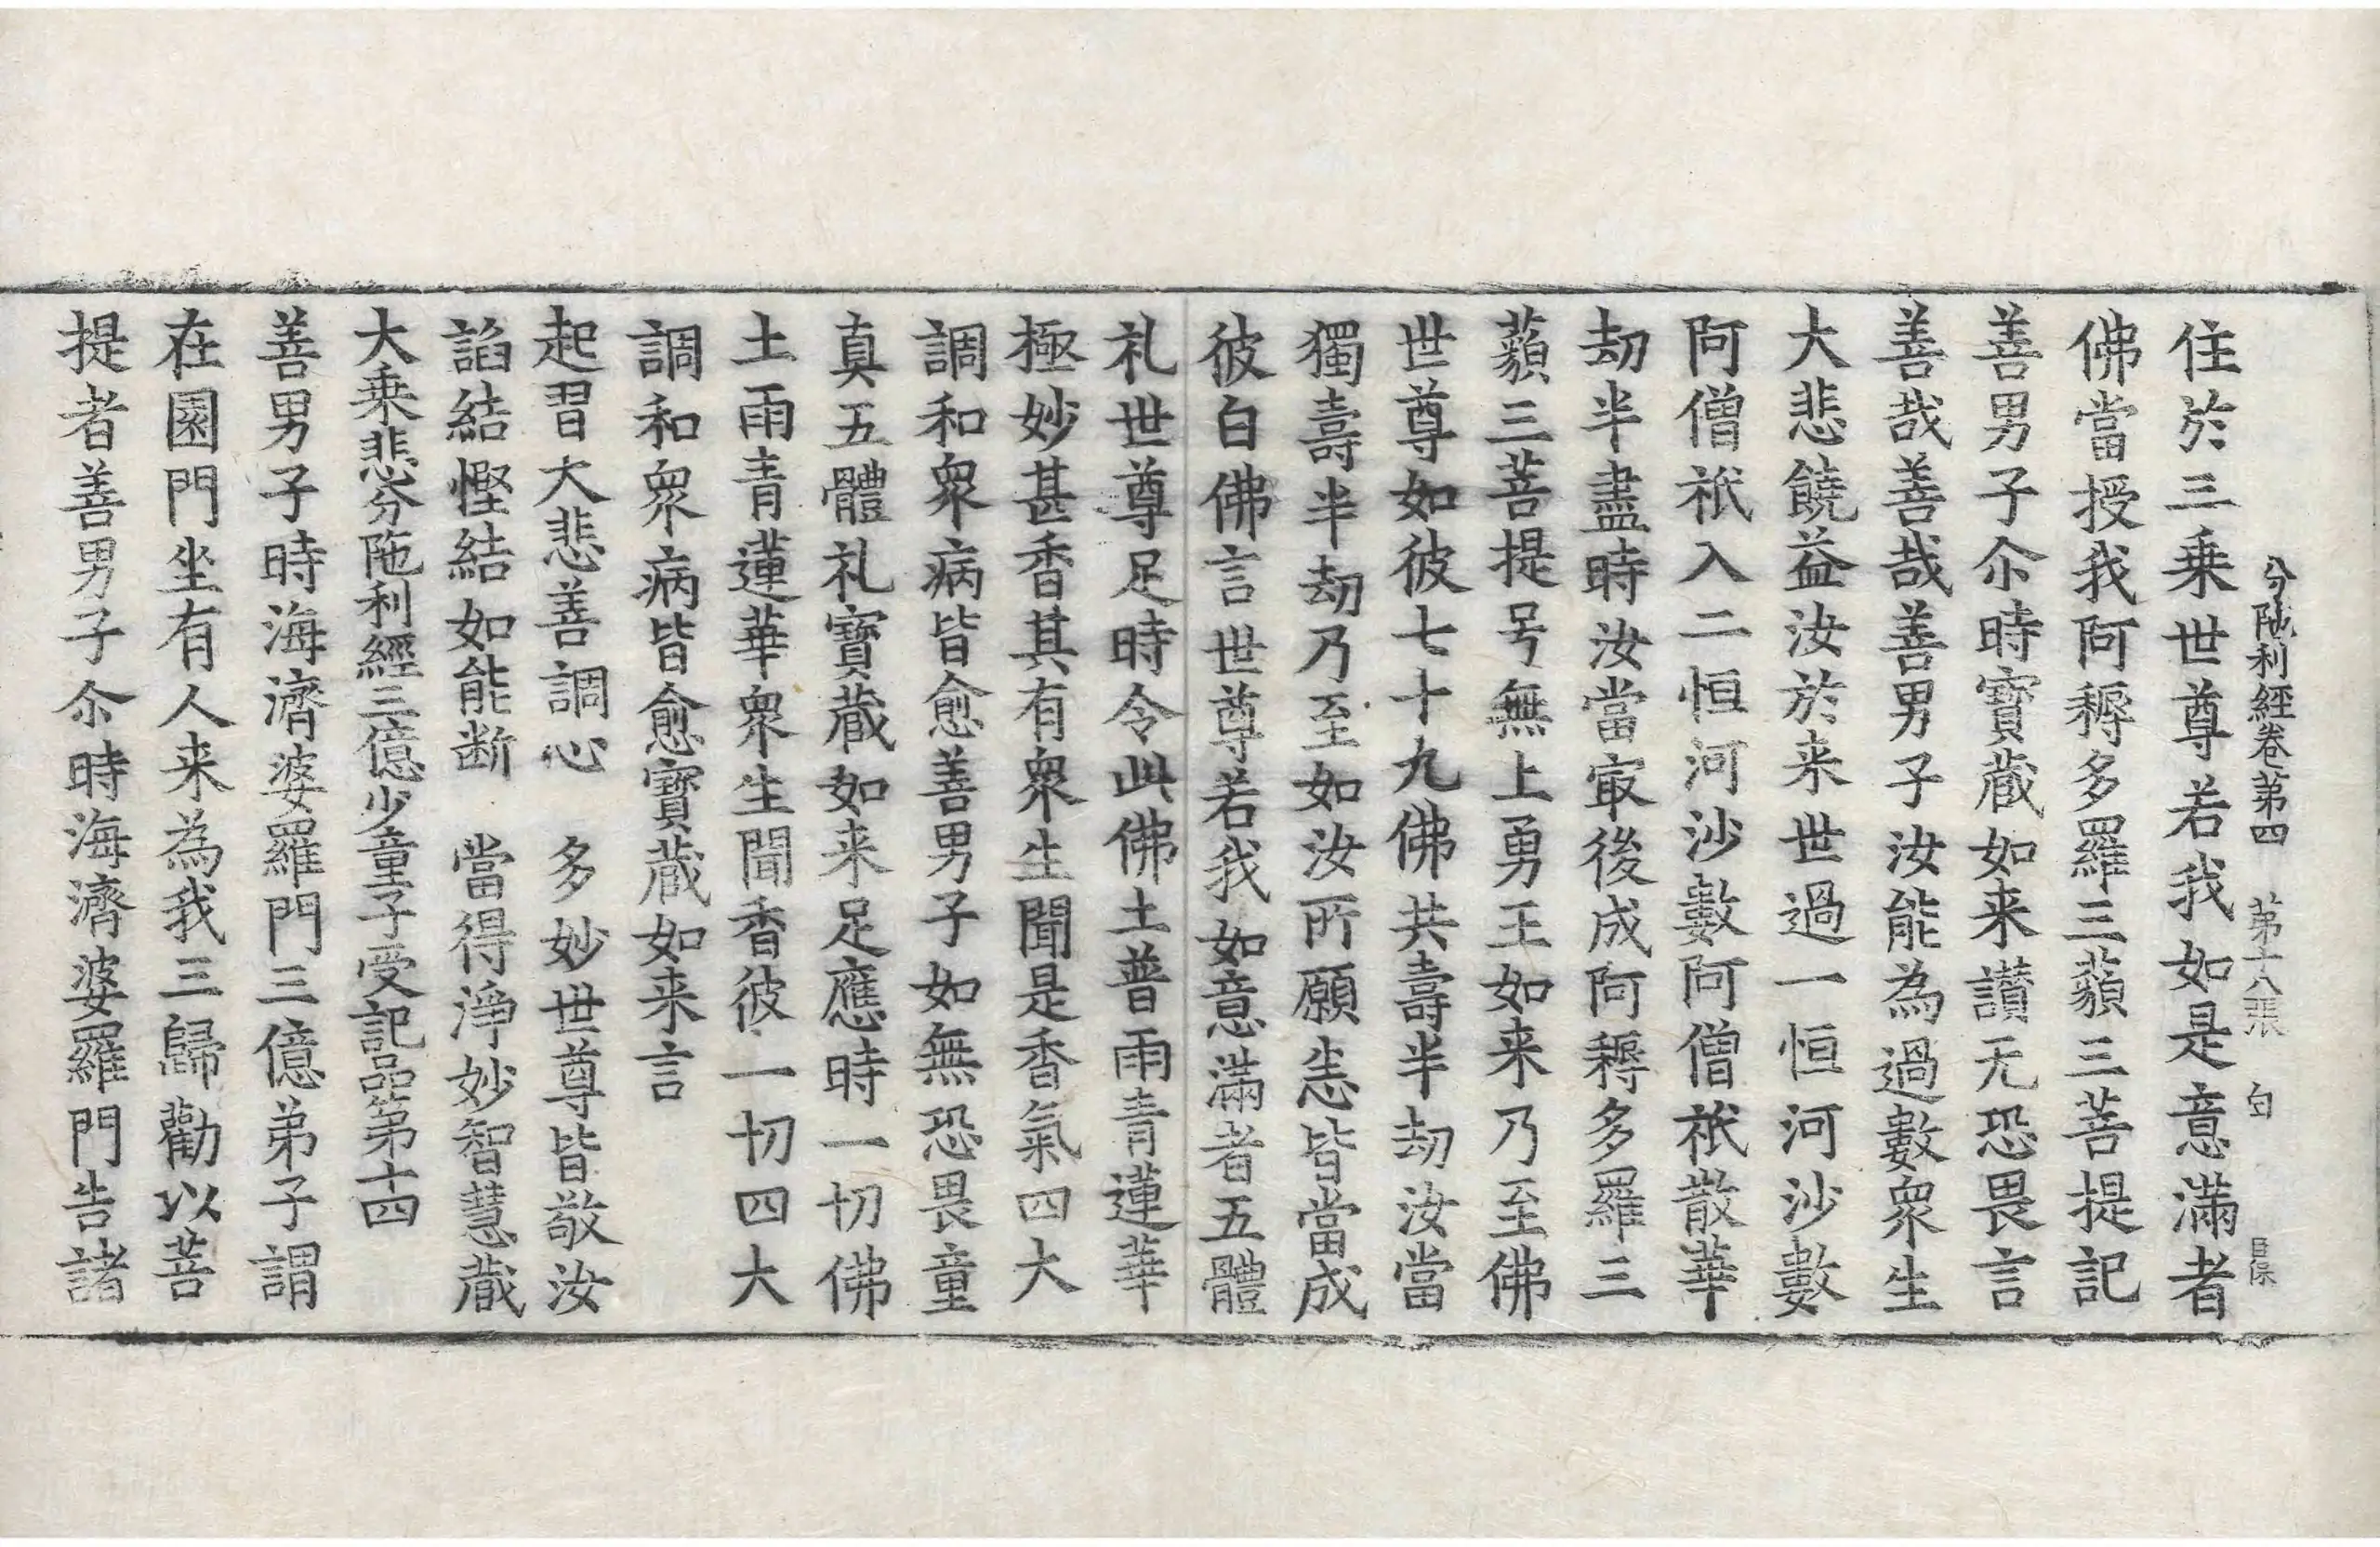 分陁利經卷第四 第十八張 匂
住於三乗世尊若我如是意滿者
佛當授我阿耨多羅三藐三菩提記
善男子尒時寶蔵如来讃无恐畏言
善哉善哉善男子汝能為過數衆生
大悲饒益汝於来世過一恒河沙數
阿僧祇入二恒河沙數阿僧祇散華
劫半盡時汝當㝡後成阿耨多羅三
藐三菩提号無上勇王如来乃至佛
世尊如彼七十九佛共壽半劫汝當
獨壽半劫乃至如汝所願恙皆當成
彼白佛言世尊若我如意滿者五體
礼世尊足時令此佛土普雨青蓮華
極妙甚香其有衆生聞是香氣四大
調和衆病皆愈善男子如無恐畏童
真五體礼寶蔵如来足應時一切佛
土雨青蓮華衆生聞香彼一切四大
調和衆病皆愈寶蔵如来言
起習大悲善調心 多妙世尊皆敬汝
諂結慳結如能断 當得淨妙智慧蔵
大乗悲分陁利經三億少童子受記品第十四
善男子時海濟婆羅門三億弟子謂
在園門坐有人来為我三歸勸以菩
提者善男子尒時海濟婆羅門告諸